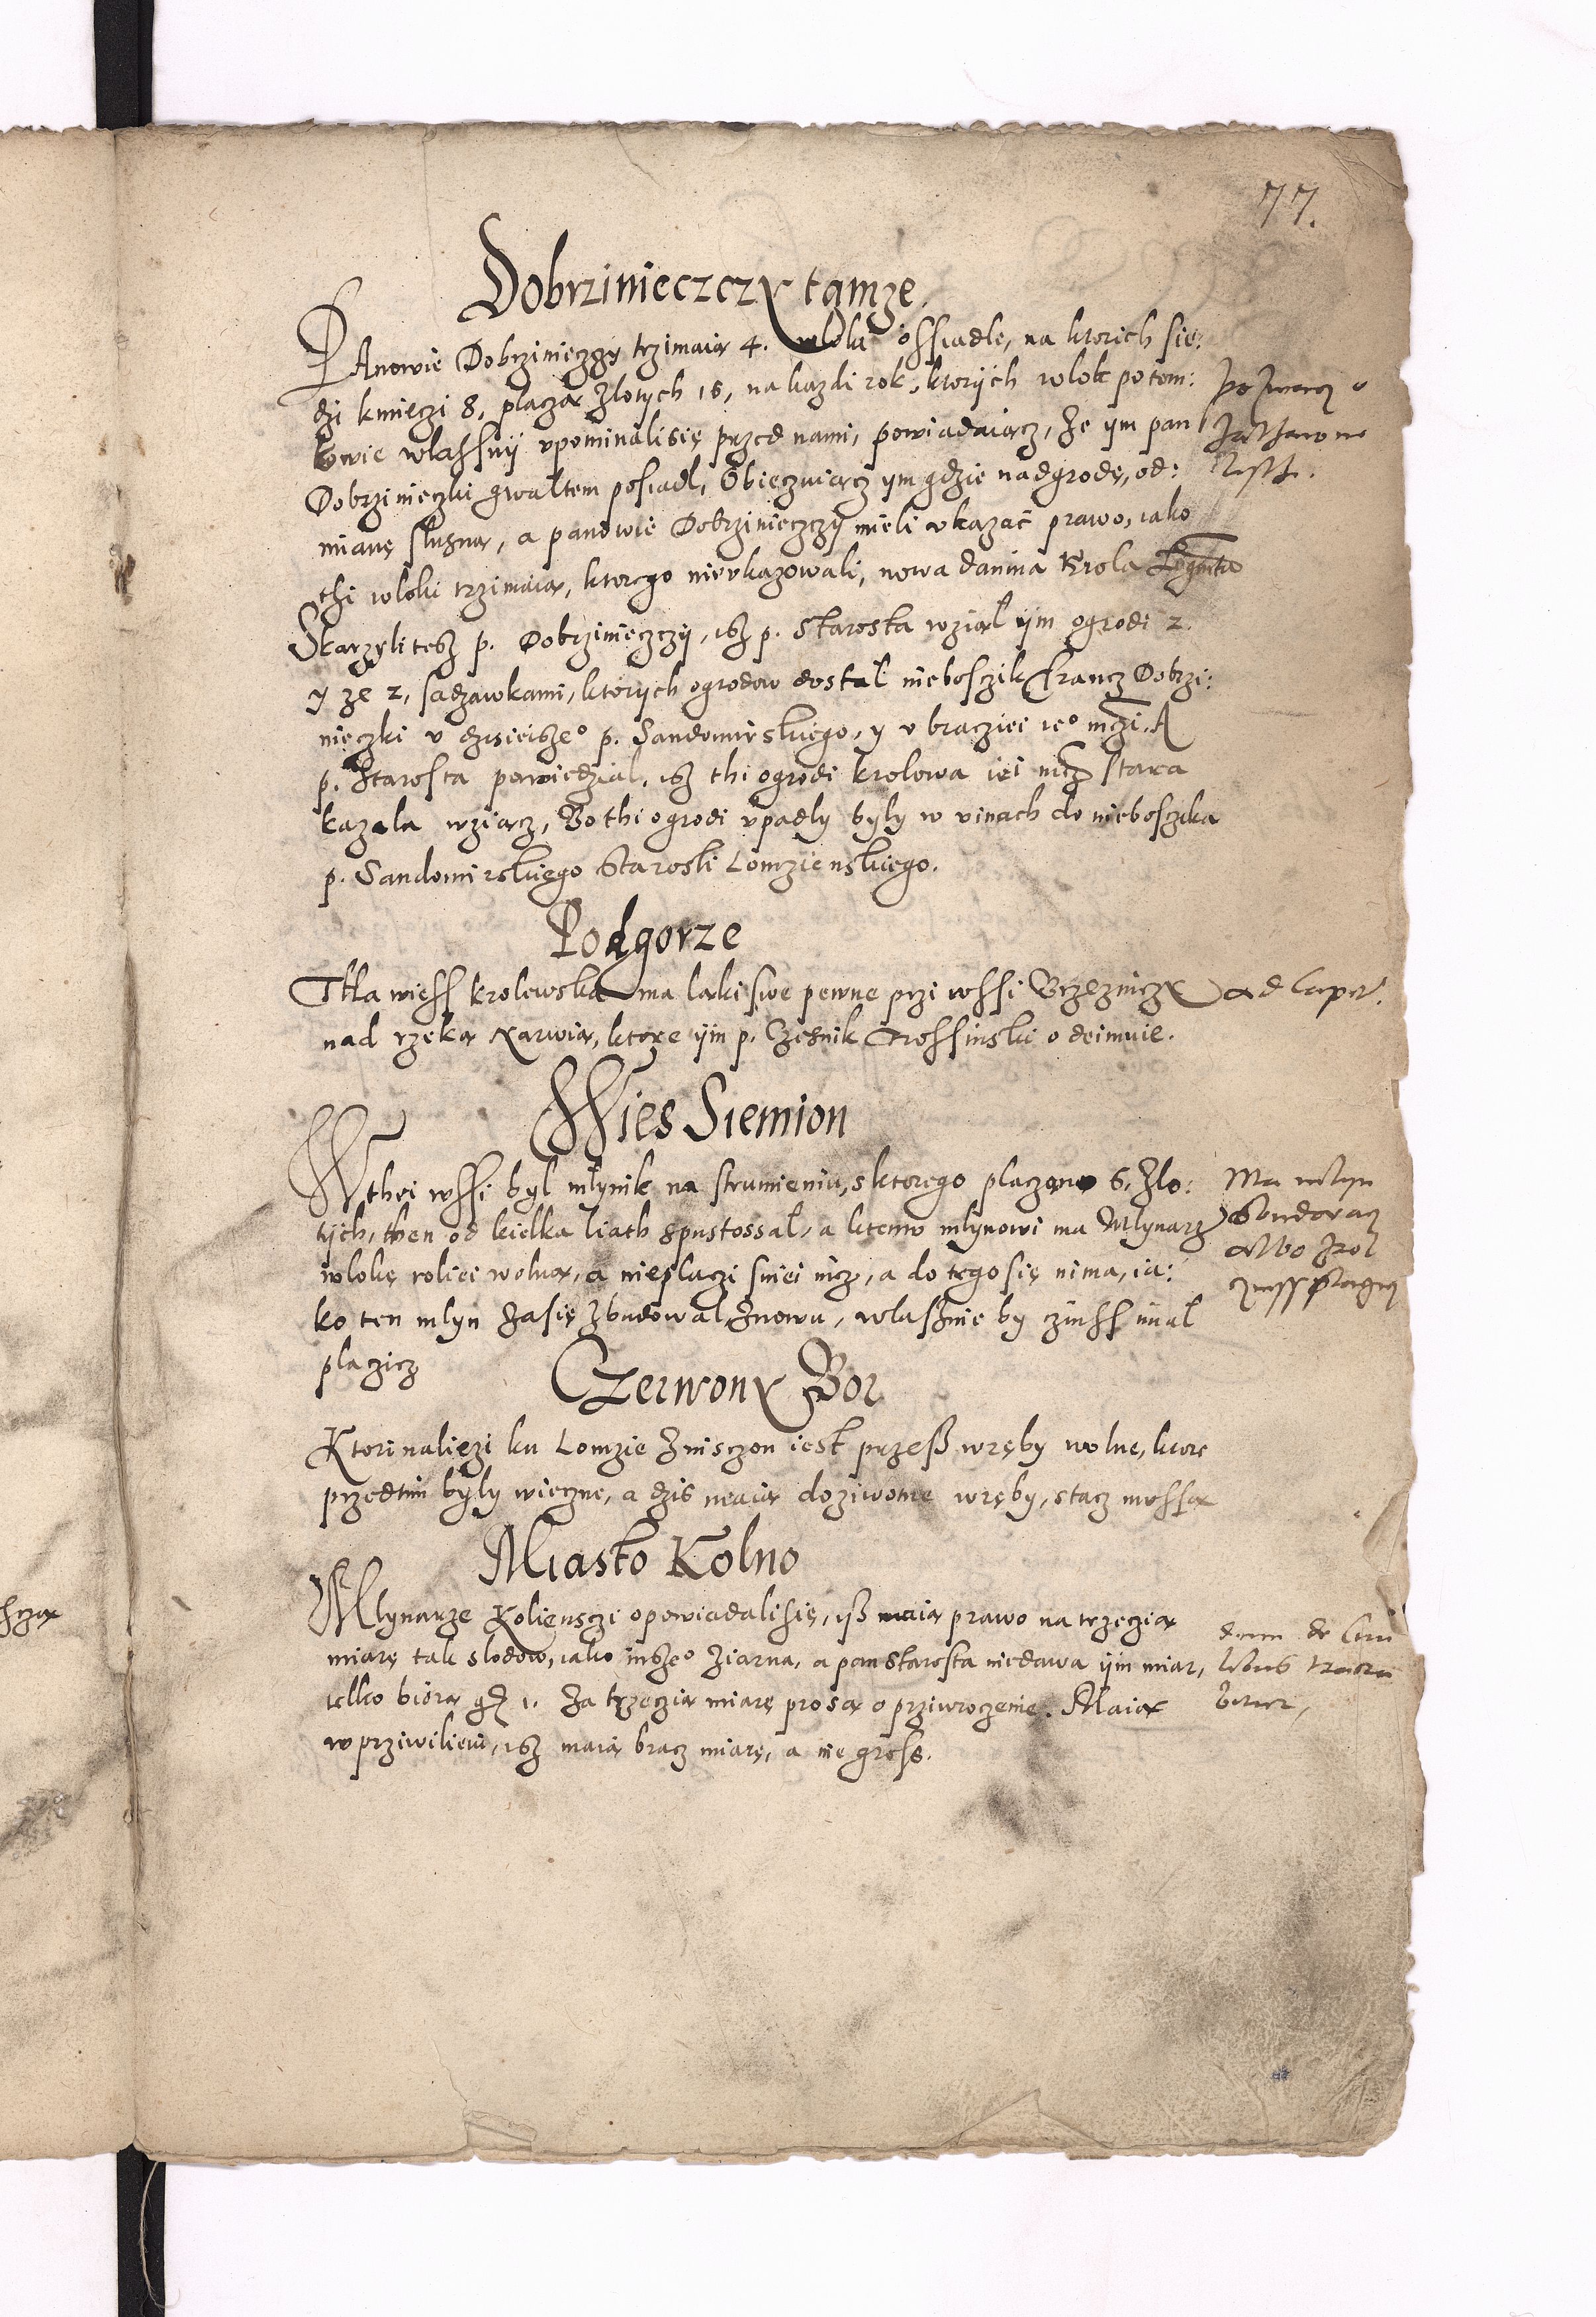 77.
Dobrzinieczczy tamze.
PAnowie Dobrzinieczzy trzimaią 4. wloki ossiadle, na ktorich sie:
dzi kmieczi 8, placzą Zlotych 16, na kazdi rok, ktorijch wlok potom:
kowie wlassnij vpominali się przed nami, powiadaiącz, Ze ym pan
Dobrzinieczki gwaltem posiadl, Obieczuiącz ym gdzie nadgrodę, od:
mianę sluzną, a panowie Dobrzinieczczy mieli vkazać prawo, iako
thi wloki trzimaią, ktorego nievkazowali, nowa danina Krola
Skarzyli tesz p. Dobrzinieczczy, isz p. Starosta wziąl ijm ogrodi 2.
y ze 2, sadzawkami, ktorych ogrodow dostal nieboszik Francz Dobrzi:
nieczki v dzisieisze° p. Sandomirskiego, y v braciei ie° mczi. A
p. Starosta powiedzial, isz thi ogrodi krolowa iei mcz stara
kazala wziącz, Bo thi ogrodi vpadly byly w vinach do nieboszka
p. Sandomirskiego Starosti Lomzienskiego.
Podgorze
Tha wiess krolewska ma ląki swe pewne przi wssi Brzeznicze
ad Caper.
nad rzeką Narwią, ktore ijm p. Czesnik odeimuie.
Wies Siemion
W thei wssi byl mlynik na strumieniu, s ktorego placzono 6, Zlo:
tych, then od kielka liath spustossal, a ktemu mlynowi ma Mlynarz
wlokę roliei wolną, a nieplaczi sniei nicz, a do tego się nima, ia:
ko ten mlyn Zasię Zbudowal Znowu, wlasznie by czinss mial
placzicz
Ma mlyn
albo
Czerwony Bor
Ktori naliezi ku Lomzie Zniszczon iest przess wręby wolne, ktore
przedtim byly wieczne, a dzis maią doziwotne wręby, stacz mussą
Miasto Kolno
Mlynarze Koliensczi opowiadali się, isz maią prawo na trzeczią
miarę tak slodow, iako insze° Ziarna, a pan Starosta niedawa ijm miar,
telko biorą gr 1. Za trzeczią miarę proszą o prziwroczenie. Maią
w prziwilieiu, isz maią bracz miarę, a nie gross.